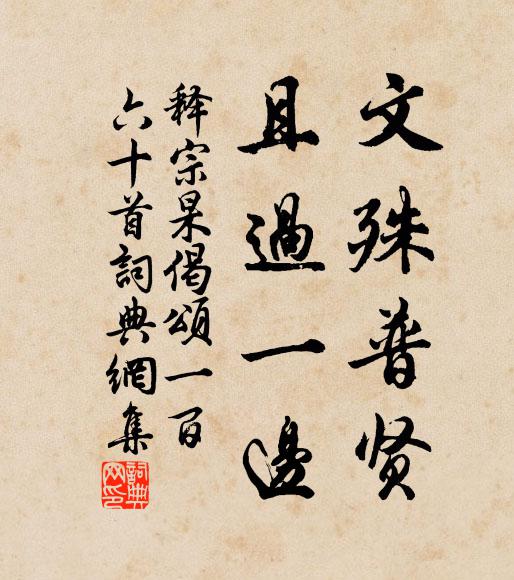 文殊普贤
且過一邊
释宗杲偈頌一百
六十首詞典網集
詞典网印